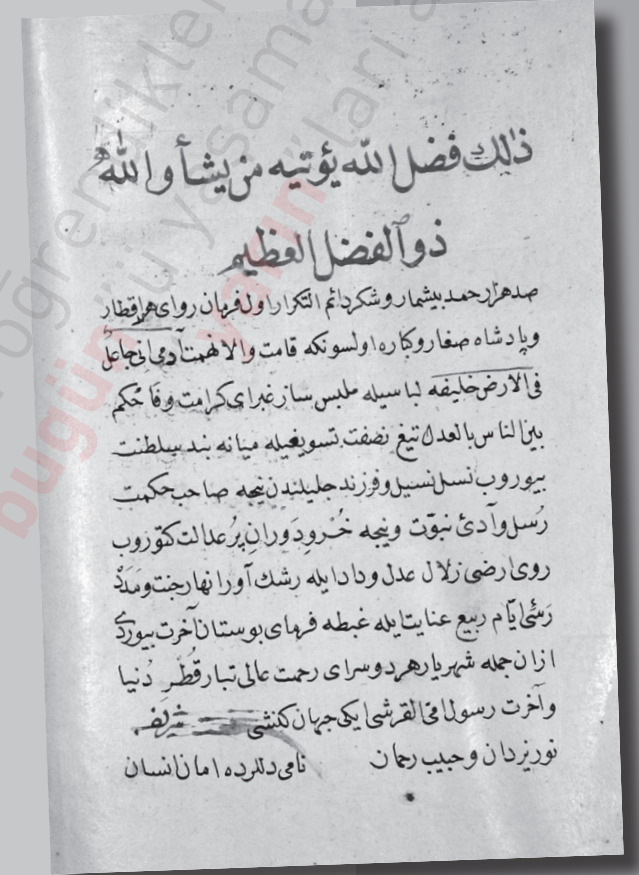 ذلك فضل الله يؤتيه من يشأ والله
ذو الفضل العظيم
صد هزار حمد بيشمار وشكر دائم التكرار اول فرمان رواى هر اقطار
وپادشاه صغار وكباره اولسونكه قامت والانهمت آدمى انى جاعل
فى الارض خليفه لباسيله ملبس ساز غبراى كرامت وفاحكم
بين الناس بالعدل تيغ نصفت تسويغيله ميانه بند سلطنت
بيوروب نسل نسيل وفرزند جليلندن نيجه صاحب حكمت
رسل وآدئ نبوّت ونيجه خسرو دوران پر عدالت كتوروب
روى ارضى زلال عدل ودادايله رشك آور انهار جنت ومدد
رسئ ايّام ربيع عنايتايله غبطه فرماى بوستان آخرت بيوردى
ازان جمله شهريار هر دو سراى رحمت عالى تبار قُطر دُنيا
وآخرت رسول امى القرشى ايكى جهان كنشى
نور يزدان وحبيب رحمان نامى دللرده امان انسان
bugün
yarın